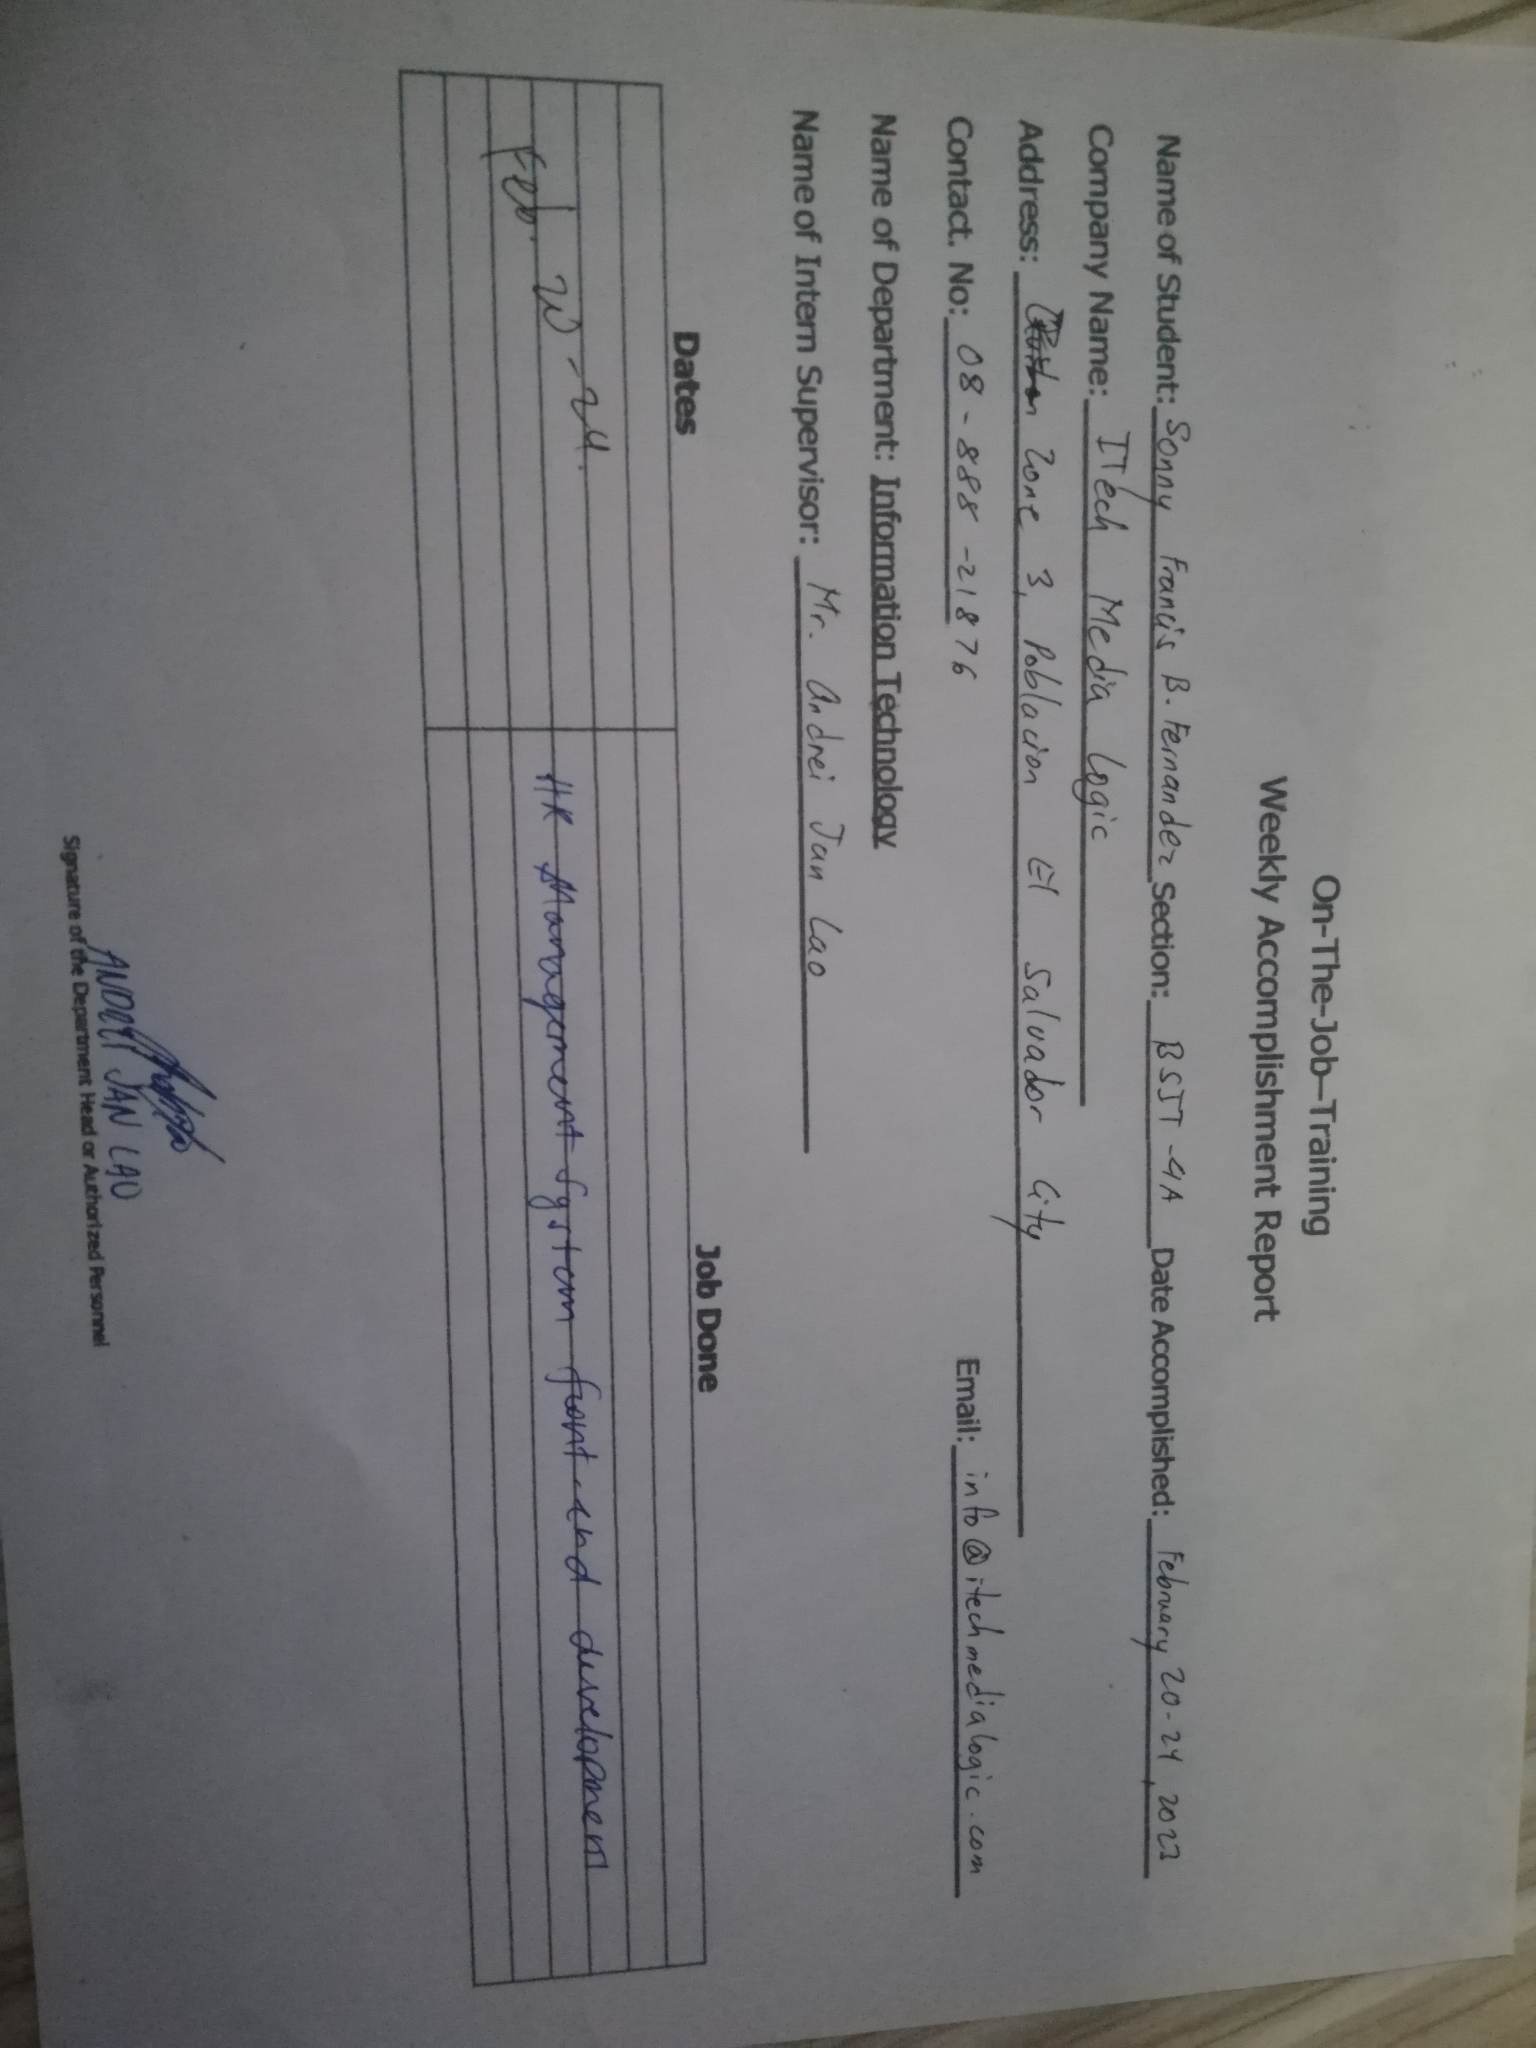 On-The-Job-Training
Weekly Accomplishment Report
Name of Student: Sonny Francis B. Fernandez Section: BSIT-4A Date Accomplished: February 20-24, 2023
Company Name: ITech Media Logic
Address: Zone 3, Poblacion El Salvador City
Contact. No: 08-888-21876 Email: info@itechmedialogic.com
Name of Department: Information Technology
Name of Intern Supervisor: Mr. Andrei Jan Lao
Dates Job Done
Feb. 20-24. HR Management System front-end development
ANDREI JAN LAO
Signature of the Department Head or Authorized Personnel